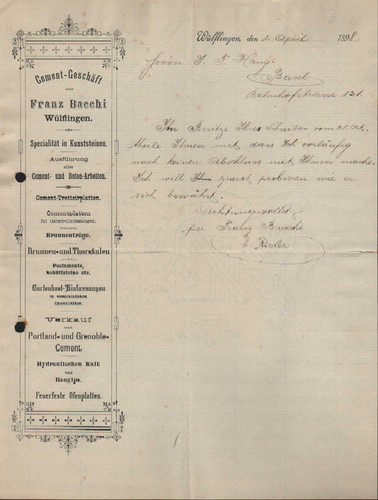 Cement-Geschäft
von
Franz Bacchi
Wülflingen.
Specialität in Kunststeinen.
Ausführung
aller
Cement- und Beton-Arbeiten.
Cement-Trottoirplatten.
Cementplatten
Brunnentröge.
Brunnen- und Thorsäulen
Postamente,
Schüttsteine etc.
Gartenbeet-Einfassungen
in verschiedenen
Verkauf
von
Portland- und Grenoble-
Cement.
Hydraulischen Kalk
und
Baugips.
Feuerfeste Ofenplatten.
Wülflingen, den 2. April 1898
Herrn J. F.
Basel
Bahnhofstrasse 121.
Im Besitze Ihres Schreiben vom
theile Ihnen mit, dass Ich vorläufig
noch keinen Abschluss mit Ihnen mache.
Ich will zuerst probieren wie er
sich bewährt.
Achtungsvollst
per Franz Bacchi